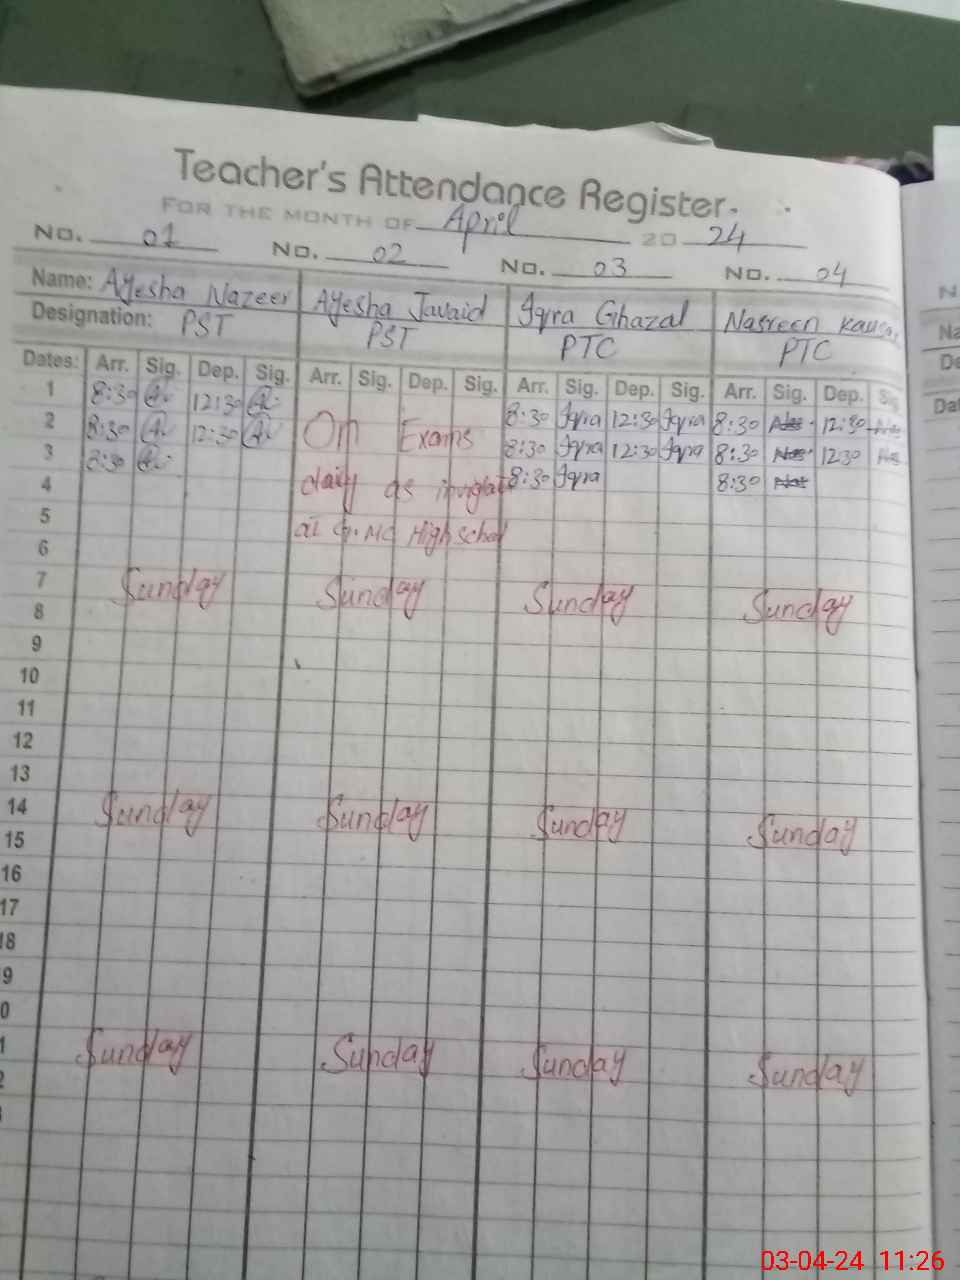 Teacher's Attendance Register
FOR THE MONTH OF April 20 24
No. 01 No. 02 No. 03 No. 04
Name: Ayesha Nazeer Ayesha Javaid Iqra Ghazal Nasreen
Designation: PST PST PTC PTC
Dates: Arr. Sig. Dep. Sig. Arr. Sig. Dep. Sig. Arr. Sig. Dep. Sig. Arr. Sig. Dep. Sig
1 8:30 12:30 8:30 Iqra 12:30 Iqra 8:30 12:30
2 8:30 12:30 On Exams 8:30 Iqra 12:30 Iqra 8:30 12:30
3 8:30 daily as 8:30 Iqra 8:30
4 at High School
5
6
7 Sunday Sunday Sunday Sunday
8
9
10
11
12
13
14 Sunday Sunday Sunday Sunday
15
16
17
18
9
0
1 Sunday Sunday Sunday Sunday
2
N
Na
De
Dat
03-04-24 11:26